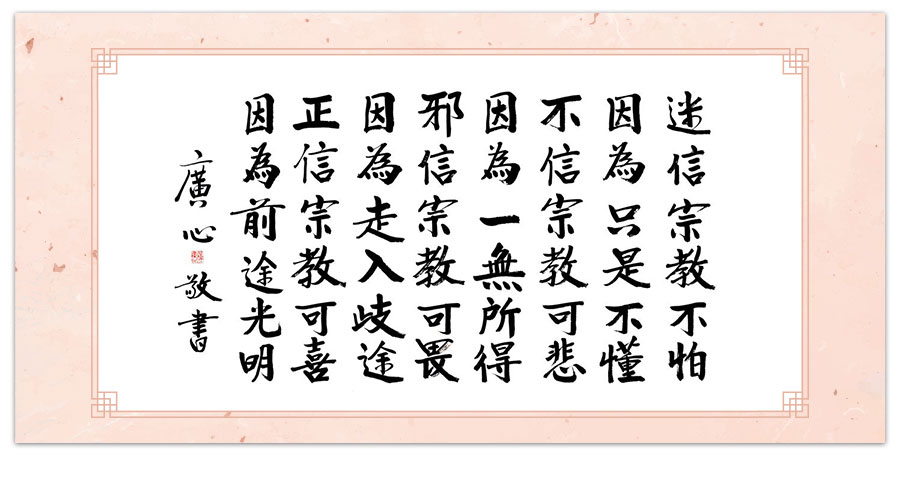 迷信宗教不怕
因為只是不懂
不信宗教可悲
因為一無所得
邪信宗教可畏
因為走入歧途
正信宗教可喜
因為前途光明
廣心敬書